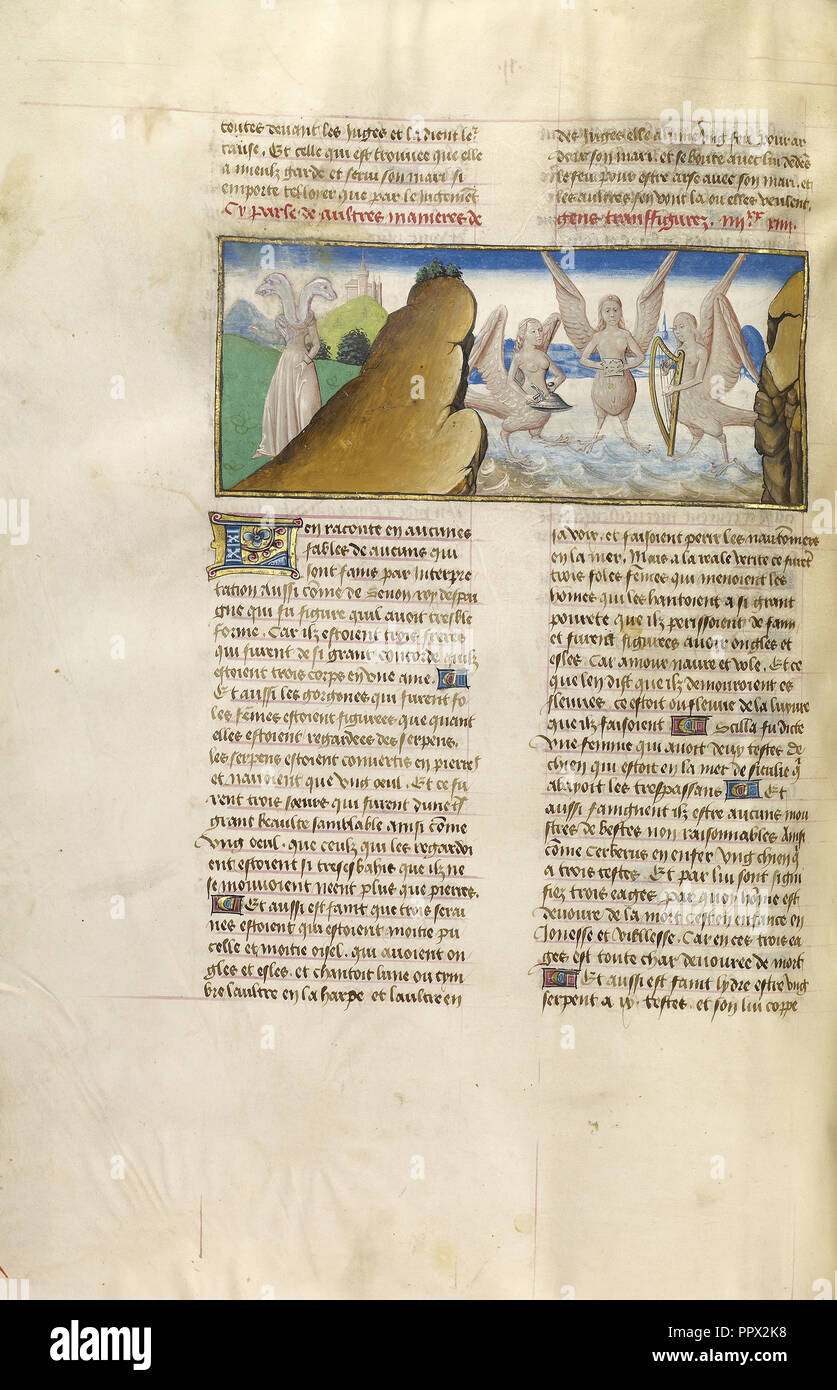 toutes deuant les Juges et la dient le
cause. Et celle qui est trouuee que elle
a mieulx garde et serui son mari si
emporte tel loyer que par le Jugement
Cy parle de aultres manieres de
des Juges elle alume ung feu pour ar
deoir son mari. et se boute auec lui dedes
le feu pour estre arse auec son mari. et
les aultres sen vont la ou elles veulent.
gens transfigurez. iiii xx xiiii.
en raconte en aucunes
fables de aucuns qui
sont fains par Interpre
tation Aussi come de Genon roy despai
gne qui fu figure quil auoit treible
forme. Car ilz estoient trois freres
qui furent de si grant concorde quilz
estoient trois corps en vne ame.
Et aussi les gorgones qui furent fo
les femes estoient figurees que quant
elles estoient regardees des serpens.
les serpens estoient conuertis en pierre
et nauoient que vng oeul. Et ce fu
rent trois soeurs qui furent dune
grant beaulte samblable ainsi come
vng oeul. que ceulz qui les regardoi
ent estoient si tresesbahis que ilz ne
se mouuoient neent plus que pierres.
Et aussi est faint que trois serai
nes estoient qui estoient moitie pu
celle et moitie oisel. qui auoient on
gles et esles. et chantoit lune ou cym
bre laultre en la harpe et laultre en
la voir. et faisoient perir les nautoniers
en la mer. Mais a la reale verite ce furet
trois foles femes qui menoient les
homes qui les hantoient a si grant
pourete que ilz perissoient de faim
et furent figurees auoir ongles et
esles. Car amour naure et vole. Et ce
que len dist que ilz demouroient es
fleuues. ce estoit ou fleuue de la luxure
que ilz faisoient Scilla fu dicte
vne femme qui auoit deux testes de
chien qui estoit en la mer de sicilie q
abayoit les trespassans Et
aussi faingnent ilz estre aucuns mon
stres de bestes non raisonnables Ainsi
come Cerberus en enfer vng chien q
a trois testes. Et par lui sont signi
fiez trois eages par quoy home est
deuoure de la mort cest en enfance en
Jonesse et viellesse. Car en ces trois ea
ges est toute char deuouree de mort
Et aussi est faint lydre estre vng
serpent a ix. testes. et son lui corpe
alamy
Image ID: PPX2K8
www.alamy.com